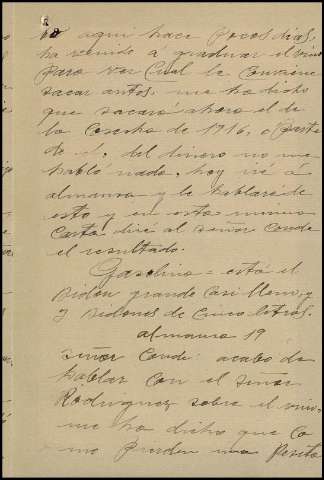 aqui hace pocos dias,
ha venido á graduar el vino
para ver cual le conviene
sacar antes. me ha dicho
que sacará ahora el de
la cosecha de 1916, o parte
de el, del dinero no me
habló nada. hoy iré á
almansa y le hablaré de
esto y en esta misma
carta diré al señor Conde
el resultado.
Gasolina = está el
vidon grande casi lleno, y
vidones de cinco litros.
almansa 19
señor Conde: acabo de
hablar con el señor
Rodriguez sobre el vino,
me ha dicho que co
mo pierden una peseta